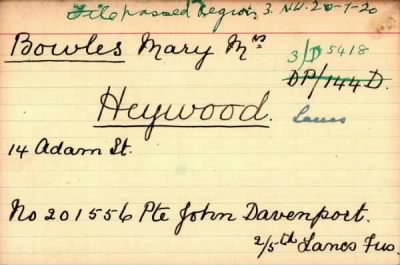 File passed Region 3. N.W. 20-7-20
Bowles Mary Mrs
3/D 5418
DP/144 D.
Heywood.
Lancs
14 Adam St.
No 201556 Pte John Davenport.
2/5th Lancs Fus.